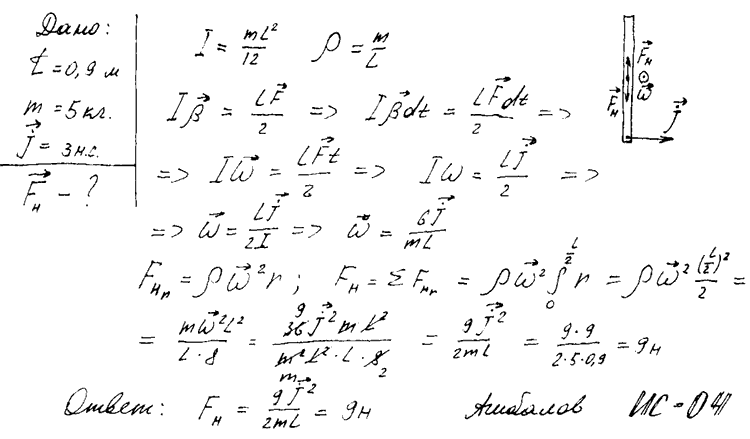 Дано:
L = 0,9 м
m = 5 кг.
J⃗ = 3 н.с.
F⃗н - ?
I = mL²/12   ρ = m/L
Iβ⃗ = LF⃗/2 => Iβ⃗dt = LF⃗dt/2 =>
=> Iω⃗ = LF⃗t/2 => Iω = LJ⃗/2 =>
=> ω⃗ = LJ⃗/2I => ω⃗ = 6J⃗/mL
Fнr = ρω⃗²r ; Fн = ΣFнr = ρω⃗² ∫₀^(L/2) r = ρω⃗² (L/2)²/2 =
= mω⃗²L²/L·8 = 36 9 J⃗² m L²/m² L²·L·8 m 2 = 9J⃗²/2mL = 9·9/2·5·0,9 = 9н
Ответ: Fн = 9J⃗²/2mL = 9н
F⃗н
ω⃗
F⃗н
J⃗